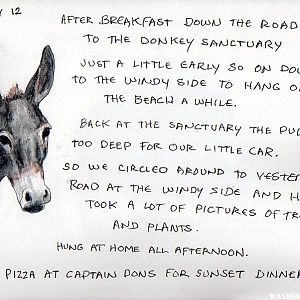 Y 12
AFTER BREAKFAST DOWN THE ROAD
TO THE DONKEY SANCTUARY
JUST A LITTLE EARLY SO ON DOW
TO THE WINDY SIDE TO HANG O
THE BEACH A WHILE.
BACK AT THE SANCTUARY THE PUD
TOO DEEP FOR OUR LITTLE CAR.
SO WE CIRCLED AROUND TO YESTER
ROAD AT THE WINDY SIDE AND H
TOOK A LOT OF PICTURES OF TR
AND PLANTS.
HUNG AT HOME ALL AFTERNOON.
PIZZA AT CAPTAIN DONS FOR SUNSET DINNE